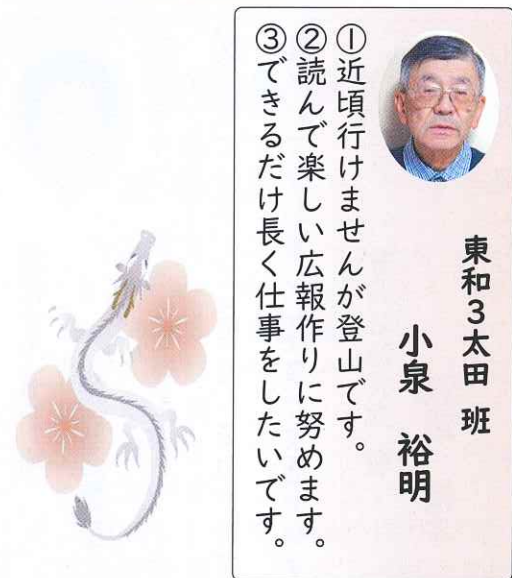 東和3太田 班
小泉 裕明
①近頃行けませんが登山です。
②読んで楽しい広報作りに努めます。
③できるだけ長く仕事をしたいです。